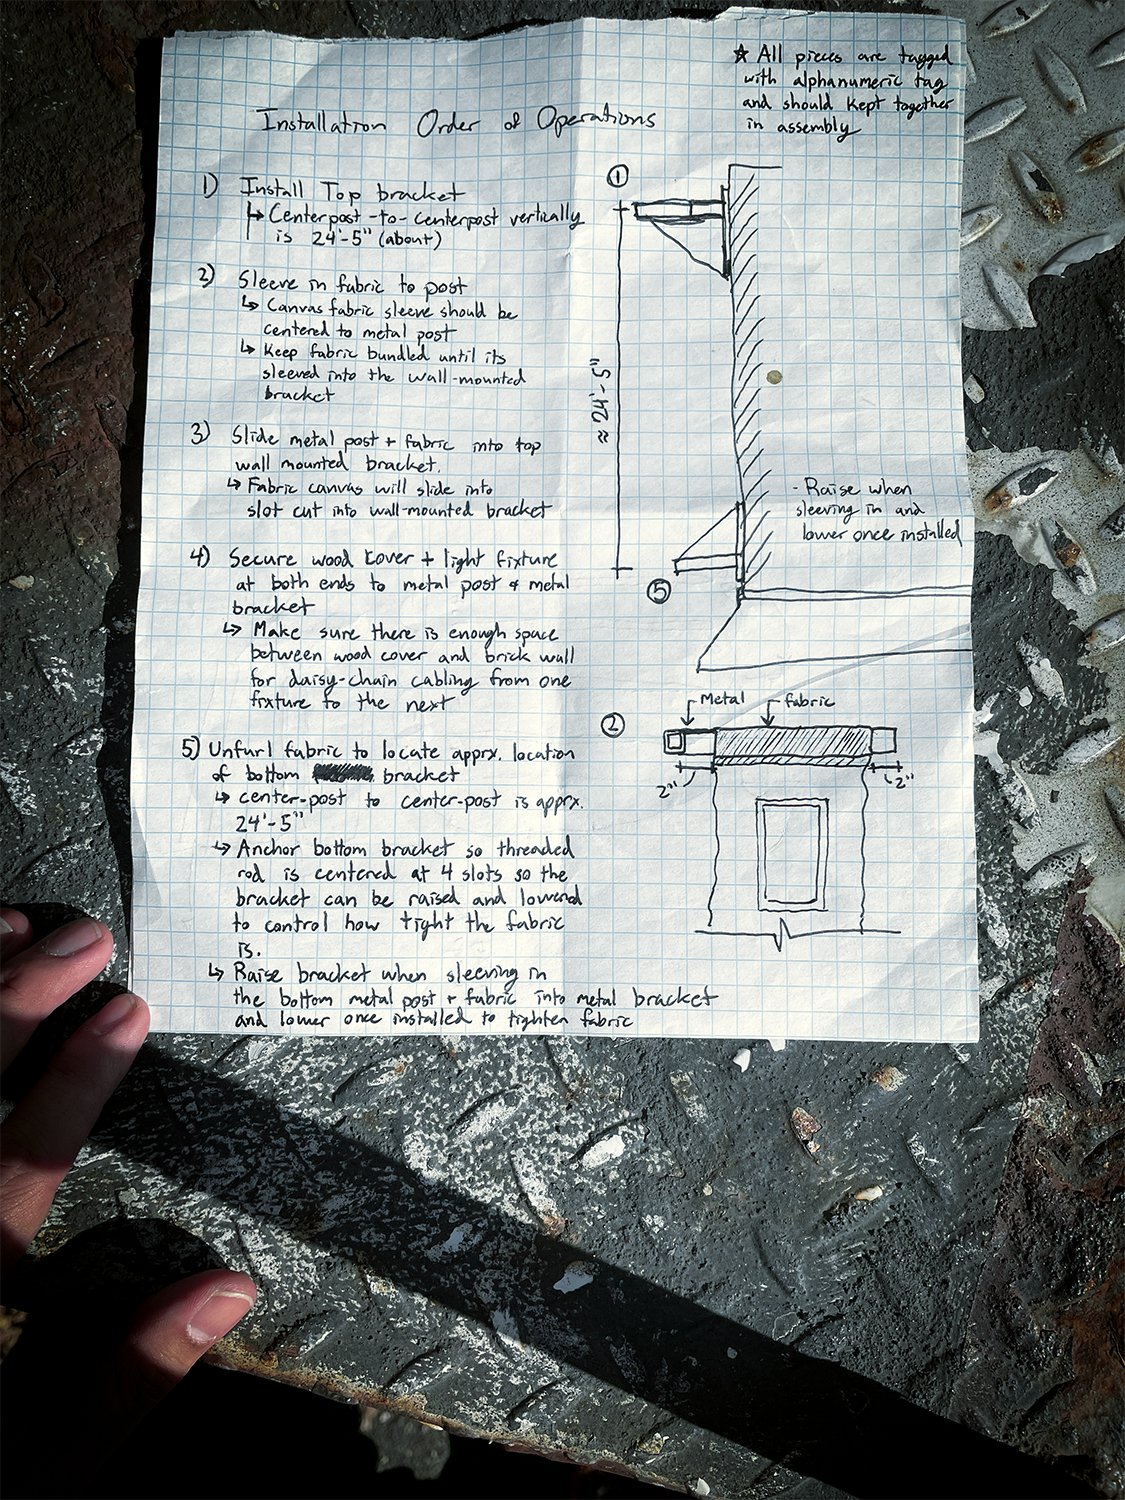 ★ All pieces are tagged
with alphanumeric tag
and should kept together
in assembly
Installation Order of Operations
1) Install Top bracket
↳ Centerpost -to- centerpost vertically
is 24'-5" (about)
2) Sleeve in fabric to post
↳ Canvas fabric sleeve should be
centered to metal post
↳ Keep fabric bundled until its
sleeved into the wall-mounted
bracket
3) Slide metal post + fabric into top
wall mounted bracket.
↳ Fabric canvas will slide into
slot cut into wall-mounted bracket
4) Secure wood cover + light fixture
at both ends to metal post & metal
bracket
↳ Make sure there is enough space
between wood cover and brick wall
for daisy-chain cabling from one
fixture to the next
5) Unfurl fabric to locate apprx. location
of bottom bracket
↳ center-post to center-post is apprx.
24'-5"
↳ Anchor bottom bracket so threaded
rod is centered at 4 slots so the
bracket can be raised and lowered
to control how tight the fabric
is.
↳ Raise bracket when sleeving in
the bottom metal post + fabric into metal bracket
and lower once installed to tighten fabric
①
≈ 24'-5"
- Raise when
sleeving in and
lower once installed
⑤
②
Metal
fabric
2"
2"